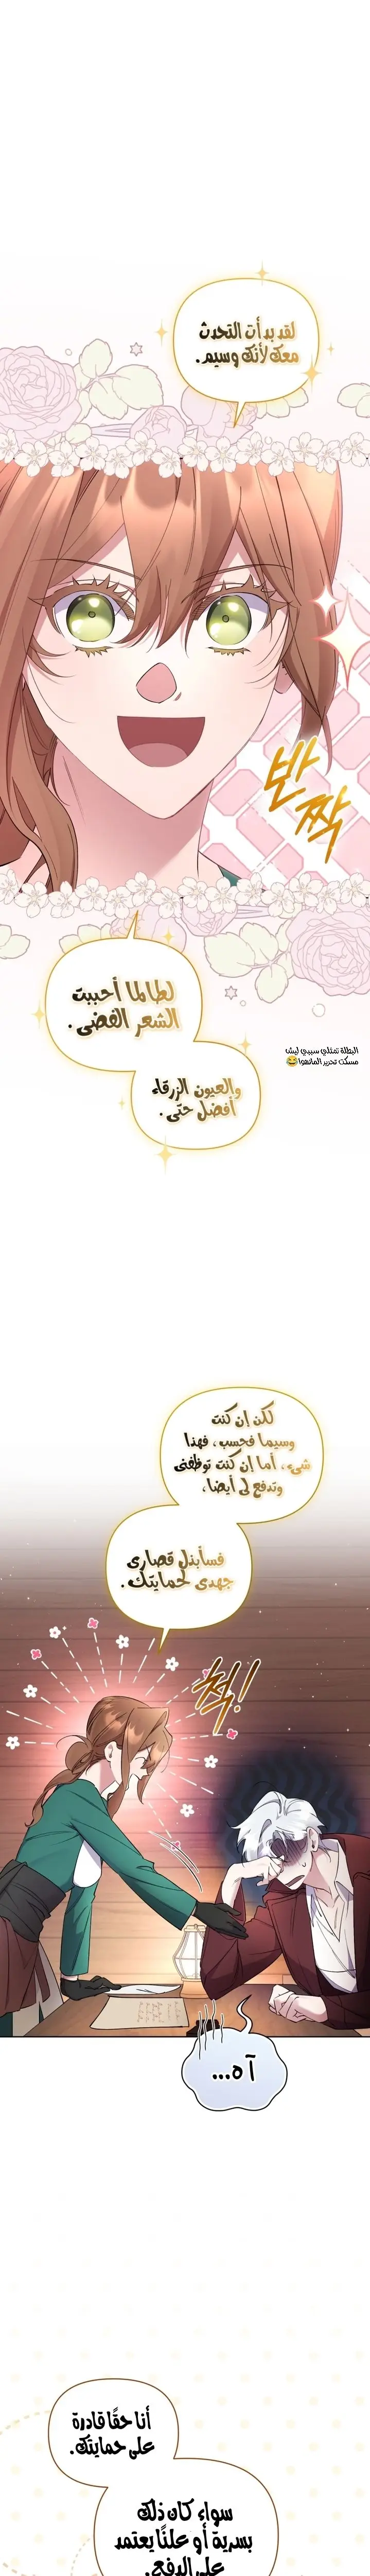 لقد بدأت التحدث
معك لأنك وسيم.
반짝
لطالما أحببت
الشعر الفضي.
والعيون الزرقاء
أفضل حتى.
البطلة تمثلني سيبي ليش
مسكت تحرير المانهوا😂
لكن إن كنت
وسيما فحسب، فهذا
شيء، أما إن كنت توظفني
وتدفع لي أيضا،
فسأبذل قصارى
جهدي لحمايتك.
척!
آه...
أنا حقًا قادرة
على حمايتك.
سواء كان ذلك
بسرية أو علنًا يعتمد
على الدفع.